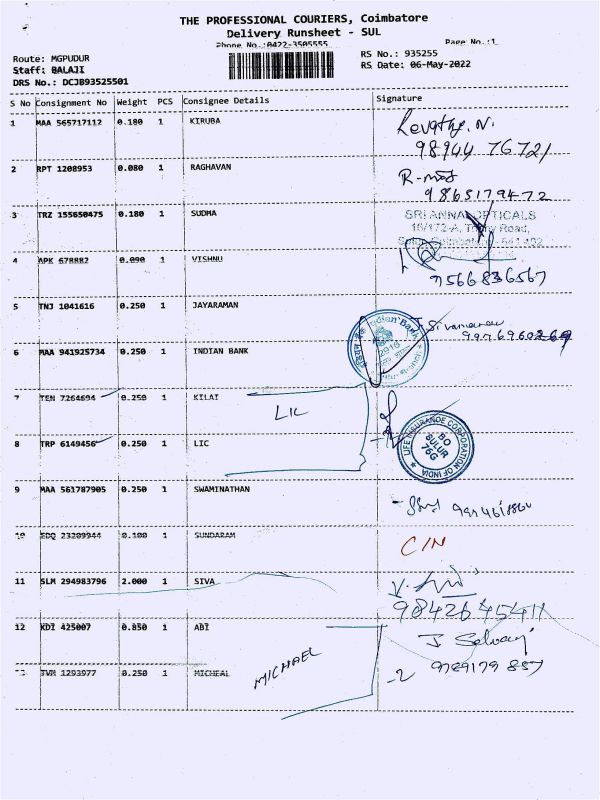 THE PROFESSIONAL COURIERS, Coimbatore
Delivery Runsheet - SUL
Phone No.:0422-3505555 Page No.:1
Route: MGPUDUR RS No.: 935255
Staff: BALAJI RS Date: 06-May-2022
DRS No.: DCJB93525501
S No Consignment No Weight PCS Consignee Details Signature
1 MAA 565717112 0.180 1 KIRUBA
98944 76721
2 RPT 1208953 0.080 1 RAGHAVAN
9865179472
3 TRZ 155650475 0.180 1 SUDHA
SRI ANNAI OPTICALS
Road,
4 APK 678882 0.090 1 VISHNU
9566836567
5 TNJ 1041616 0.250 1 JAYARAMAN
Indian Bank
6 MAA 941925734 0.250 1 INDIAN BANK
7 TEN 7264694 0.250 1 KILAI
LIC
8 TRP 6149456 0.250 1 LIC
LIFE INSURANCE CORPORATION OF INDIA
BO
SULUR
76G
9 MAA 561787905 0.250 1 SWAMINATHAN
10 EDQ 23209944 0.100 1 SUNDARAM
C/N
11 SLM 294983796 2.000 1 SIVA
9842645411
12 KDI 425007 0.850 1 ABI
J Selvaj
9789179857
13 TVM 1293977 0.250 1 MICHEAL
MICHAEL
-2